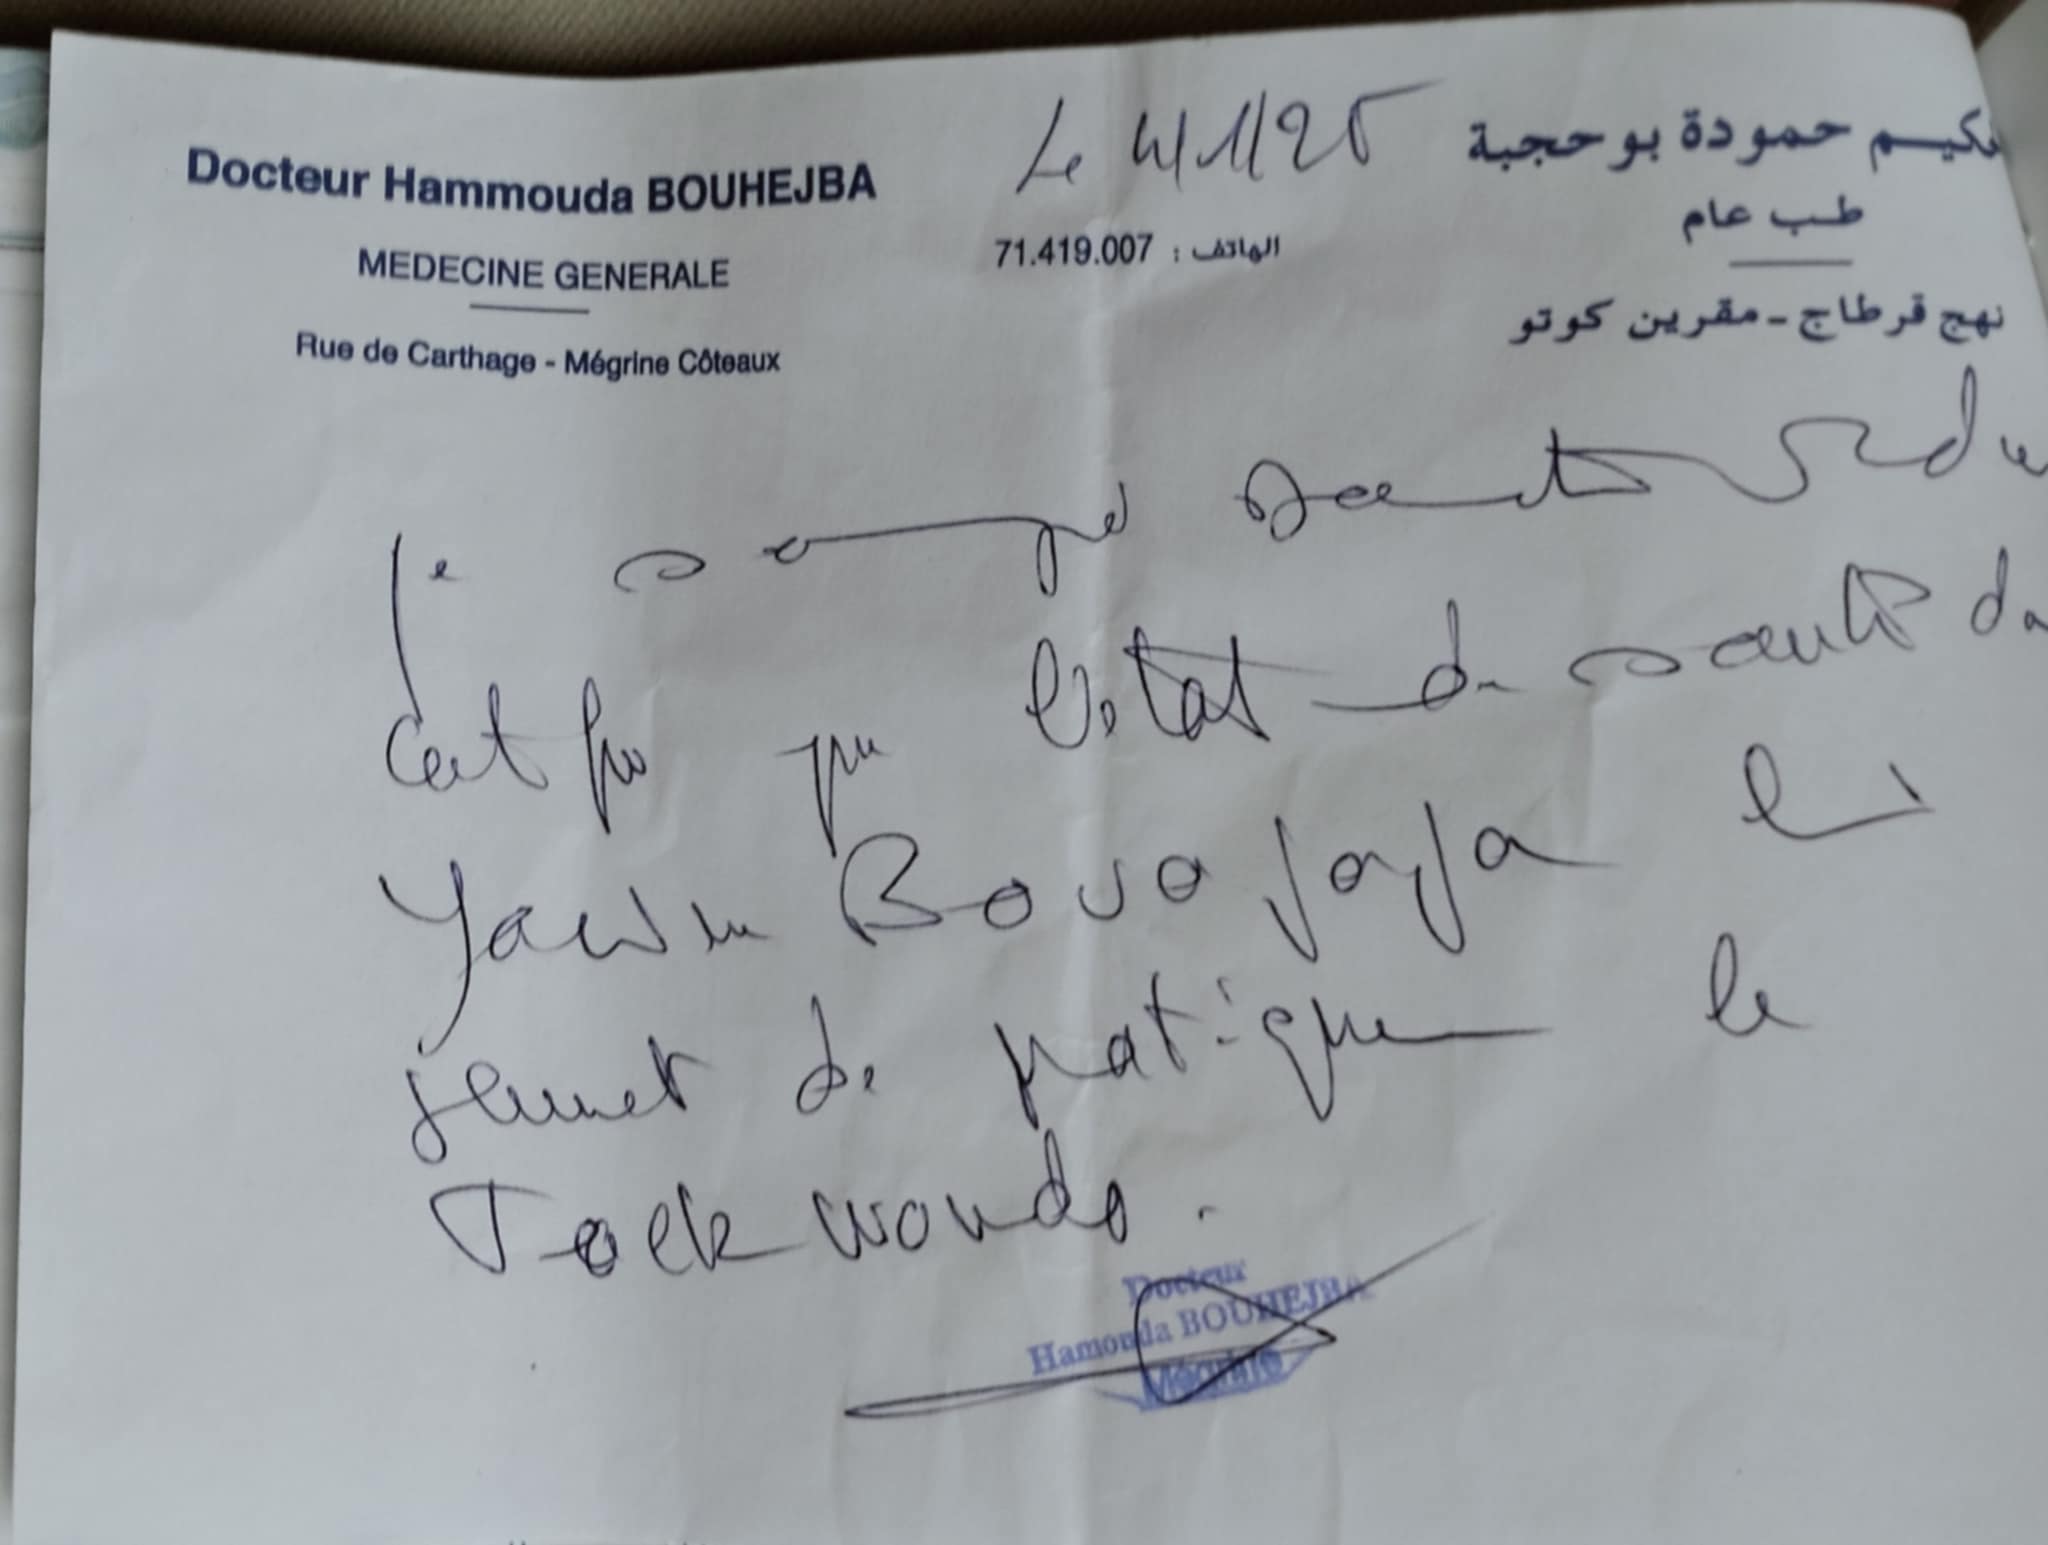 Docteur Hammouda BOUHEJBA
MEDECINE GENERALE
Rue de Carthage - Mégrine Côteaux
Le 4/1/25
71.419.007 : الهاتف
كيم حمودة بوحجبة
طب عام
نهج قرطاج - مقرين كوتو
Je soussigné Docteur
Certifie que l'état de santé da
Yassin Bouajaja lui
permet de pratiquer le
Toekwondo.
Docteur
Hamouda BOUHEJBA
Mégrine